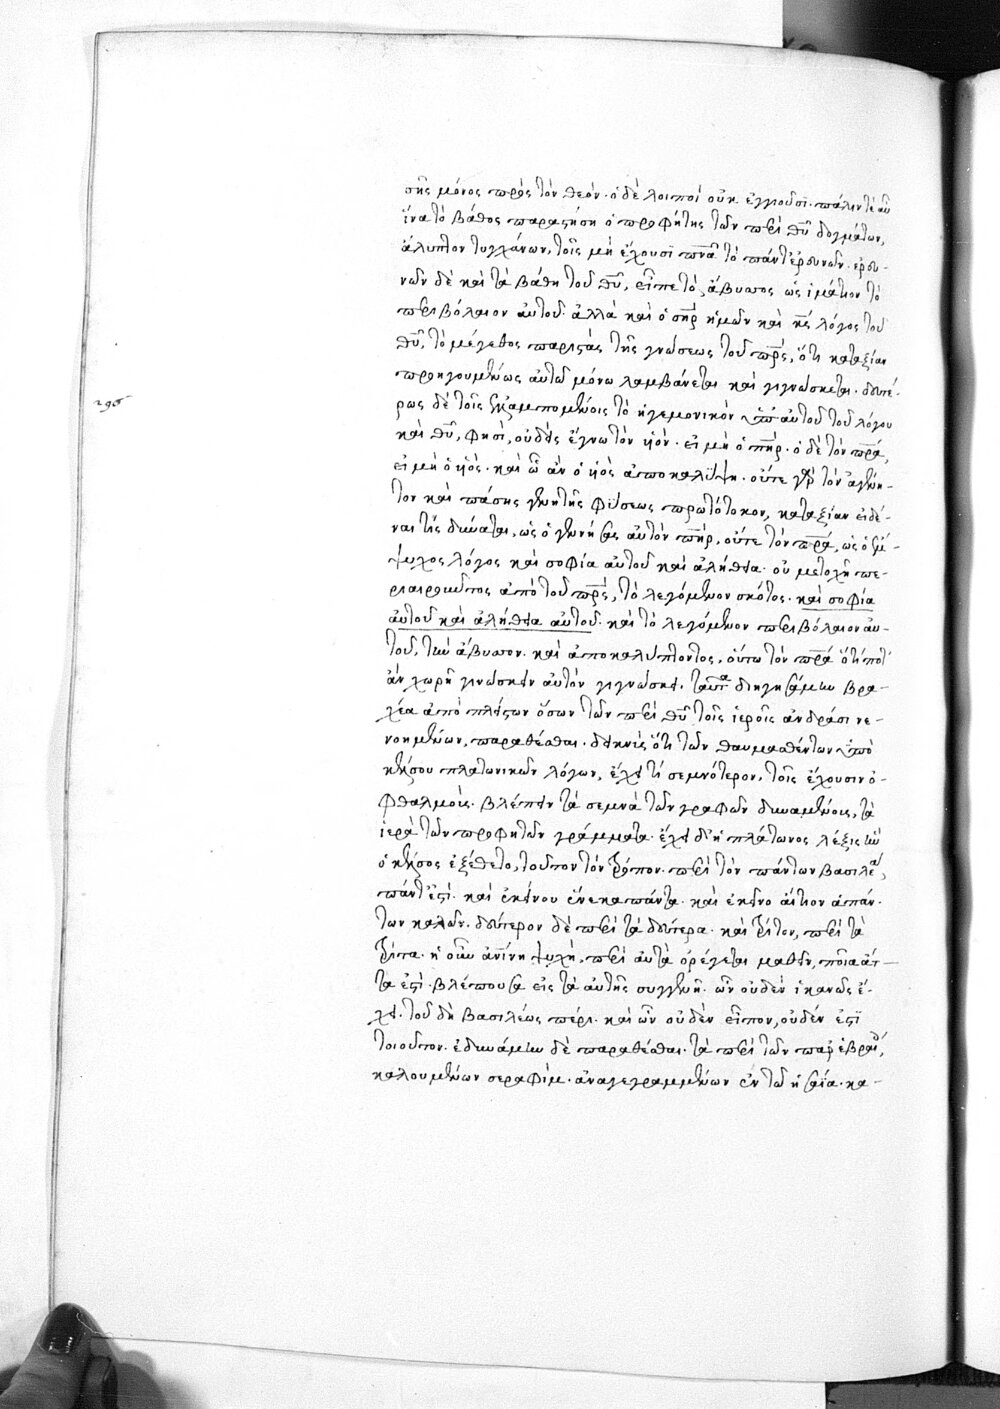 σῆς μόνος πρὸς τὸν θεόν· οἱ δὲ λοιποὶ οὐκ ἐγγιοῦσι· πάλιν τὲ αὖ
ἵνα τὸ βάθος παραστήση ὁ προφήτης τῶν περὶ θῦ δογμάτων,
ἄλυπτον τυγχάνων, τοῖς μὴ ἔχουσι πνᾶ τὸ πάντ' ἐρευνῶν· ἐρευ-
νῶν δὲ καὶ τὰ βάθη τοῦ θῦ, εἶπε τὸ, ἄβυσσος ὡς ἱμάτιον τὸ
περιβόλαιον αὐτοῦ· ἀλλὰ καὶ ὁ σηρ ἡμῶν καὶ κς λόγος τοῦ
θῦ, τὸ μέγεθος παριστὰς τῆς γνώσεως τοῦ πρς, ὅτι καταξίαν
προηγουμένως αὐτῶ μόνω λαμβάνεται καὶ γιγνώσκεται· δευτέ-
296
ρως δὲ τοῖς ἐλλαμπομένοις τὸ ἡγεμονικὸν ὑπ' αὐτοῦ τοῦ λόγου
καὶ θῦ, φησὶ, οὐδεὶς ἔγνω τὸν υἱόν· εἰ μὴ ὁ πηρ· ὁ δὲ τὸν πρα,
εἰ μὴ ὁ υἱός· καὶ ὧ ἂν ὁ υἱὸς ἀποκαλύψη· οὔτε γὰρ τὸν ἀγένη-
τον καὶ πάσης γενητῆς φύσεως πρωτότοκον, καταξίαν εἰδέ-
ναι τὶς δύναται, ὡς ὁ γεννήσας αὐτὸν πηρ, οὔτε τὸν πρα, ὡς ὁ ἔμ-
ψυχος λόγος καὶ σοφία αὐτοῦ καὶ ἀλήθεια· οὗ μετοχῆ πε-
ριαιροῦντος ἀπὸ τοῦ πρς, τὸ λεγόμενον σκότος· καὶ σοφία
αὐτοῦ καὶ ἀλήθεια αὐτοῦ· καὶ τὸ λεγόμενον περιβόλαιον αὐ-
τοῦ, τὴν ἄβυσσον· καὶ ἀποκαλύπτοντος, οὕτω τὸν πρα ὅ τί ποτ'
ἂν χωρῆ γινώσκειν αὐτὸν γιγνώσκει· ταῦτα διηγησάμην βρα-
χέα ἀπὸ πλείστων ὅσων τῶν περὶ θῦ τοῖς ἱεροῖς ἀνδράσι νε-
νοημένων, παραθέσθαι· δεικνὺς ὅτι τῶν θαυμασθέντων ὑπὸ
κέλσου πλατωνικῶν λόγων, ἔχει τί σεμνότερον, τοῖς ἔχουσιν ὀ-
φθαλμοὺς· βλέπειν τὰ σεμνὰ τῶν γραφῶν δυναμένους, τὰ
ἱερὰ τῶν προφητῶν γράμματα· ἔχει δ' ἡ πλάτωνος λέξις ἣν
ὁ κέλσος ἐξέθετο, τοῦτον τὸν τρόπον· περὶ τὸν πάντων βασιλέα,
πάντ' ἐστὶ· καὶ ἐκείνου ἕνεκα πάντα· καὶ ἐκεῖνο αἴτιον ἁπάν-
των καλῶν· δεύτερον δὲ περὶ τὰ δεύτερα· καὶ τρίτον, περὶ τὰ
τρίτα· ἡ οὖν ἀνθρωπίνη ψυχὴ, περὶ αὐτὰ ὀρέγεται μαθεῖν, ποῖα ἄτ-
τα ἐστὶ· βλέπουσα εἰς τὰ αὑτῆς συγγενῆ· ὧν οὐδὲν ἱκανῶς ἔ-
χει· τοῦ δὴ βασιλέως πέρι· καὶ ὧν οὐδὲν εἶπον, οὐδέν ἐστι
τοιοῦτον· ἐδυνάμην δὲ παραθέσθαι· τὰ περὶ τῶν παρ' ἑβραίοις,
καλουμένων σεραφίμ· ἀναγεγραμμένων ἐν τῶ ἡσαία· κα-